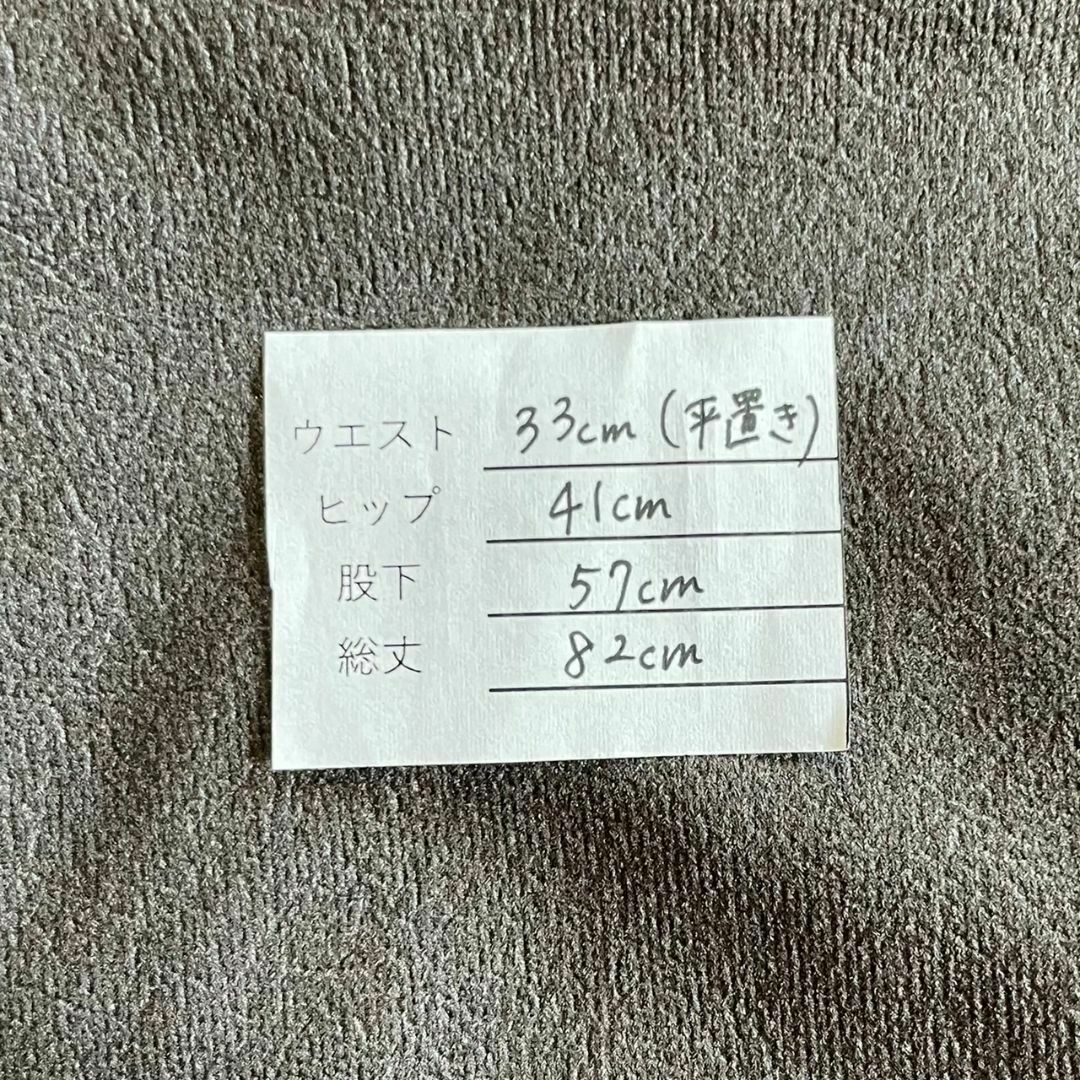 ウエスト 33cm (平置き)
ヒップ 41cm
股下 57cm
総丈 82cm